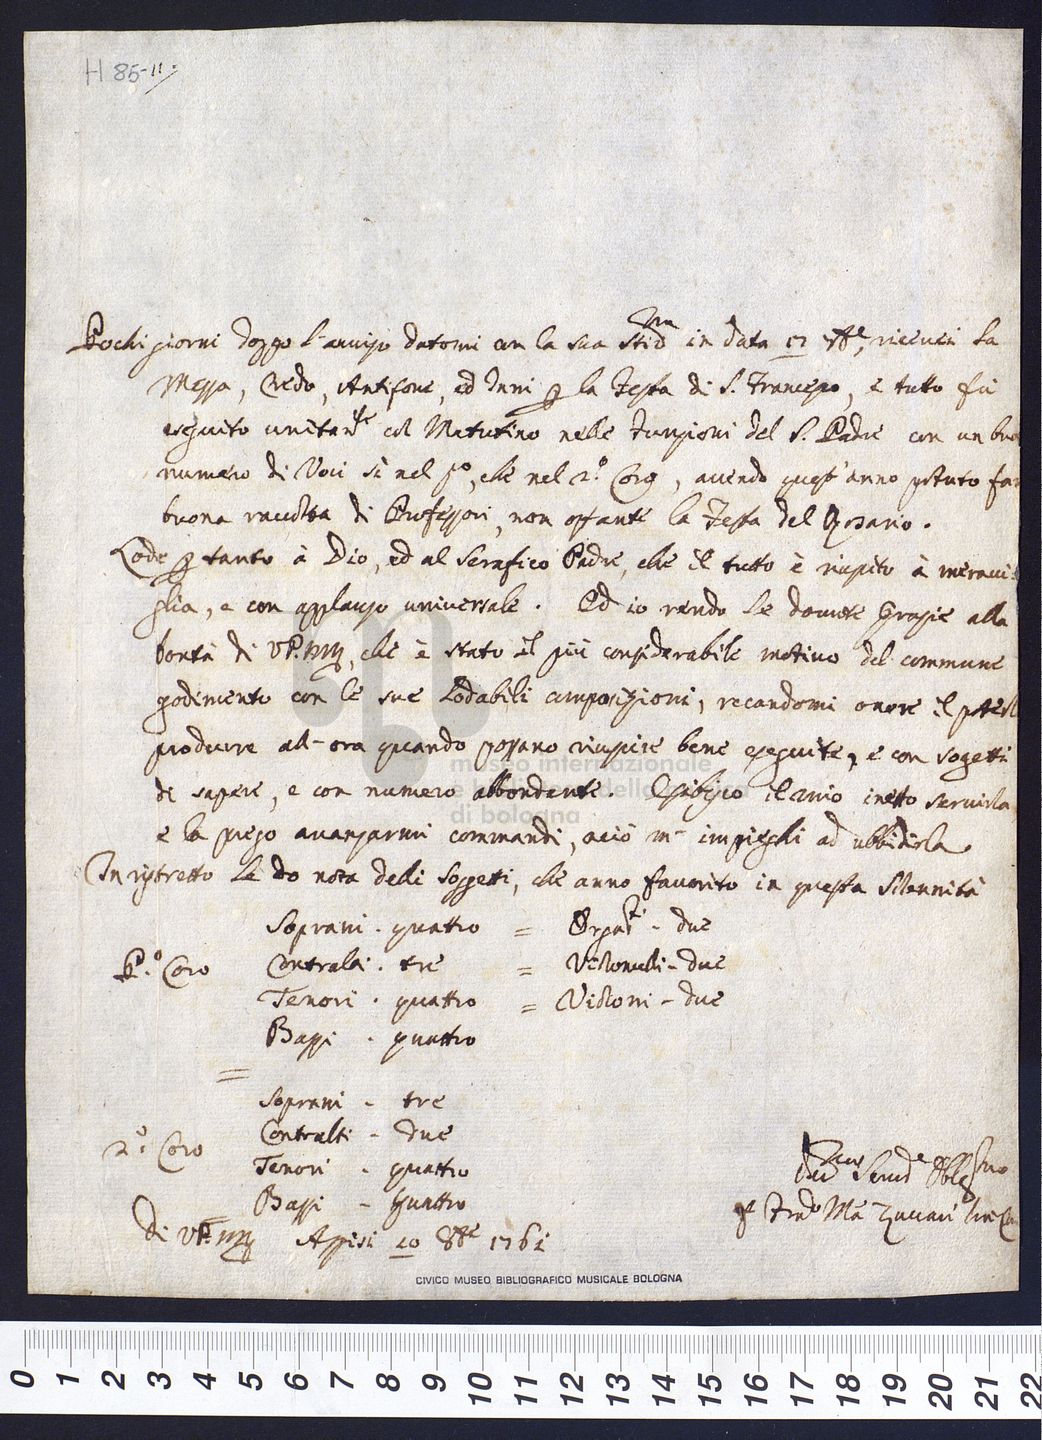 H 85-11.
Pochi giorni doppo l'auuiso datomi con la sua stim.ma in data 17 7bre, riceuei la
Messa, Credo, Antifone, ed Inni p la Festa di S. Francesco, e tutto fù
eseguito unitam.te col Matutino nelle funzioni del S. Padre con un buo
numero di Voci sì nel p.o, che nel 2.o Coro, auendo quest'anno potuto far
buona raccolta di Professori, non ostante la Festa del Rosario.
Lode p tanto à Dio, ed al Serafico Padre, che il tutto è riuscito à meraui
glia, e con applauso uniuersale. Ed io rendo le douute grazie alla
bontà di VP. M.R., che è stato il più considerabile motiuo del commune
godimento con le sue lodabili composizioni, recandomi onore il poterle
produrre all'ora quando possano riuscire bene eseguite, e con sogetti
di sapere, e con numero abbondante. Esibisco il mio inetto seruirla
e la prego auanzarmi commandi, aciò m' impieghi ad ubbidirla
In ristretto le do nota delli Soggetti, che anno fauorito in questa solennità
Soprani . quattro = Organi . due
P.o Coro Contralti . tre = Violoncelli - due
Tenori . quattro = Violoni - due
Bassi . quattro
=
Soprani - tre
Contralti - due
2.o Coro Tenori . quattro
Bassi - quattro
Diu.mo Seru.e Obblg.mo
Di VP. M.R. Assisi 10 8bre 1761
f. Fran.o M.a Zuccari
CIVICO MUSEO BIBLIOGRAFICO MUSICALE BOLOGNA
museo internazionale
e biblioteca della musica
di bologna
0 1 2 3 4 5 6 7 8 9 10 11 12 13 14 15 16 17 18 19 20 21 22